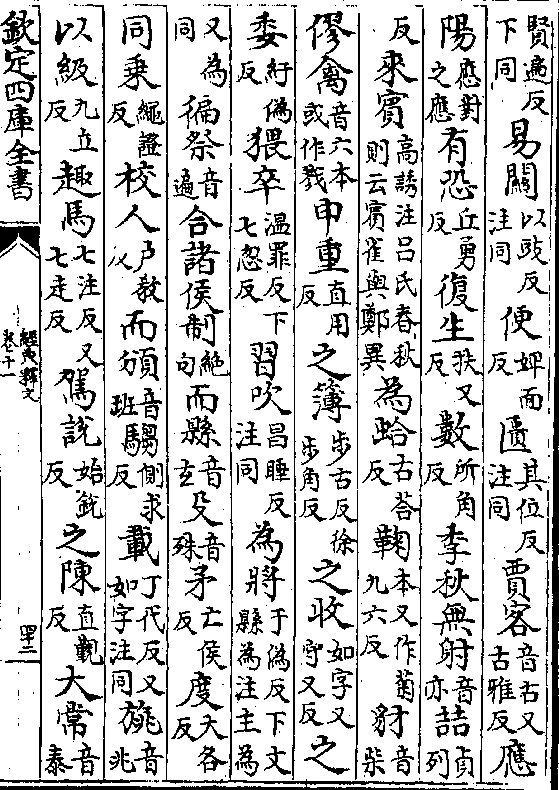 賢遍反下同易關以豉反注同便婢面反匱其位反注同賈客音古又古雅反應
陽應對之應有恐丘勇反復生扶又反數所角反季秋無射音亦喆貞列
反來賓高誘注呂氏春秋則云賓雀與鄭異為蛤古荅反鞠本又作菊九六反豺音柴
僇禽音六本或作戮申重直用反之簿步古反徐步角反之收如字又守又反之
委紆偽反猥卒溫罪反下七忽反習吹昌睡反注同為將于偽反下文縣為注主為
又為同徧祭音遍合諸侯制絶句而縣音玄殳音殊矛亡侯反度大各反
同乘繩證反校人户教反而頒音班騶側求反載丁代反又如字注同旐音兆
以級九立反趣馬七注反又七走反駕說始銳反之陳直覲反大常音泰
欽定四庫全書
經典釋文
卷十一
四二